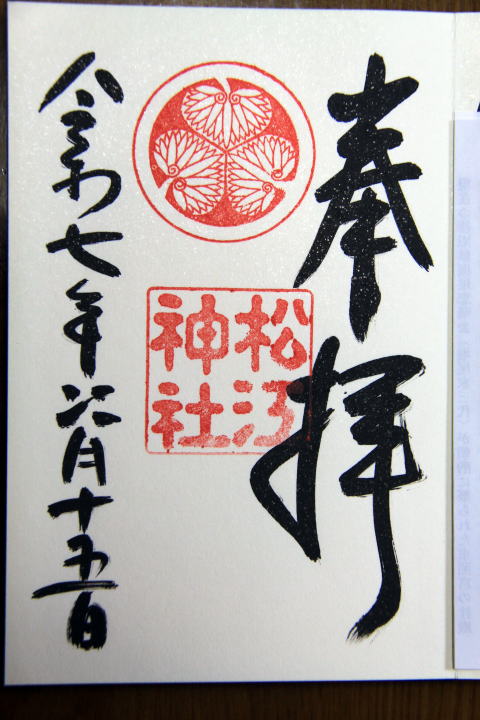 奉拝
松江
神社
令和七年六月十五日